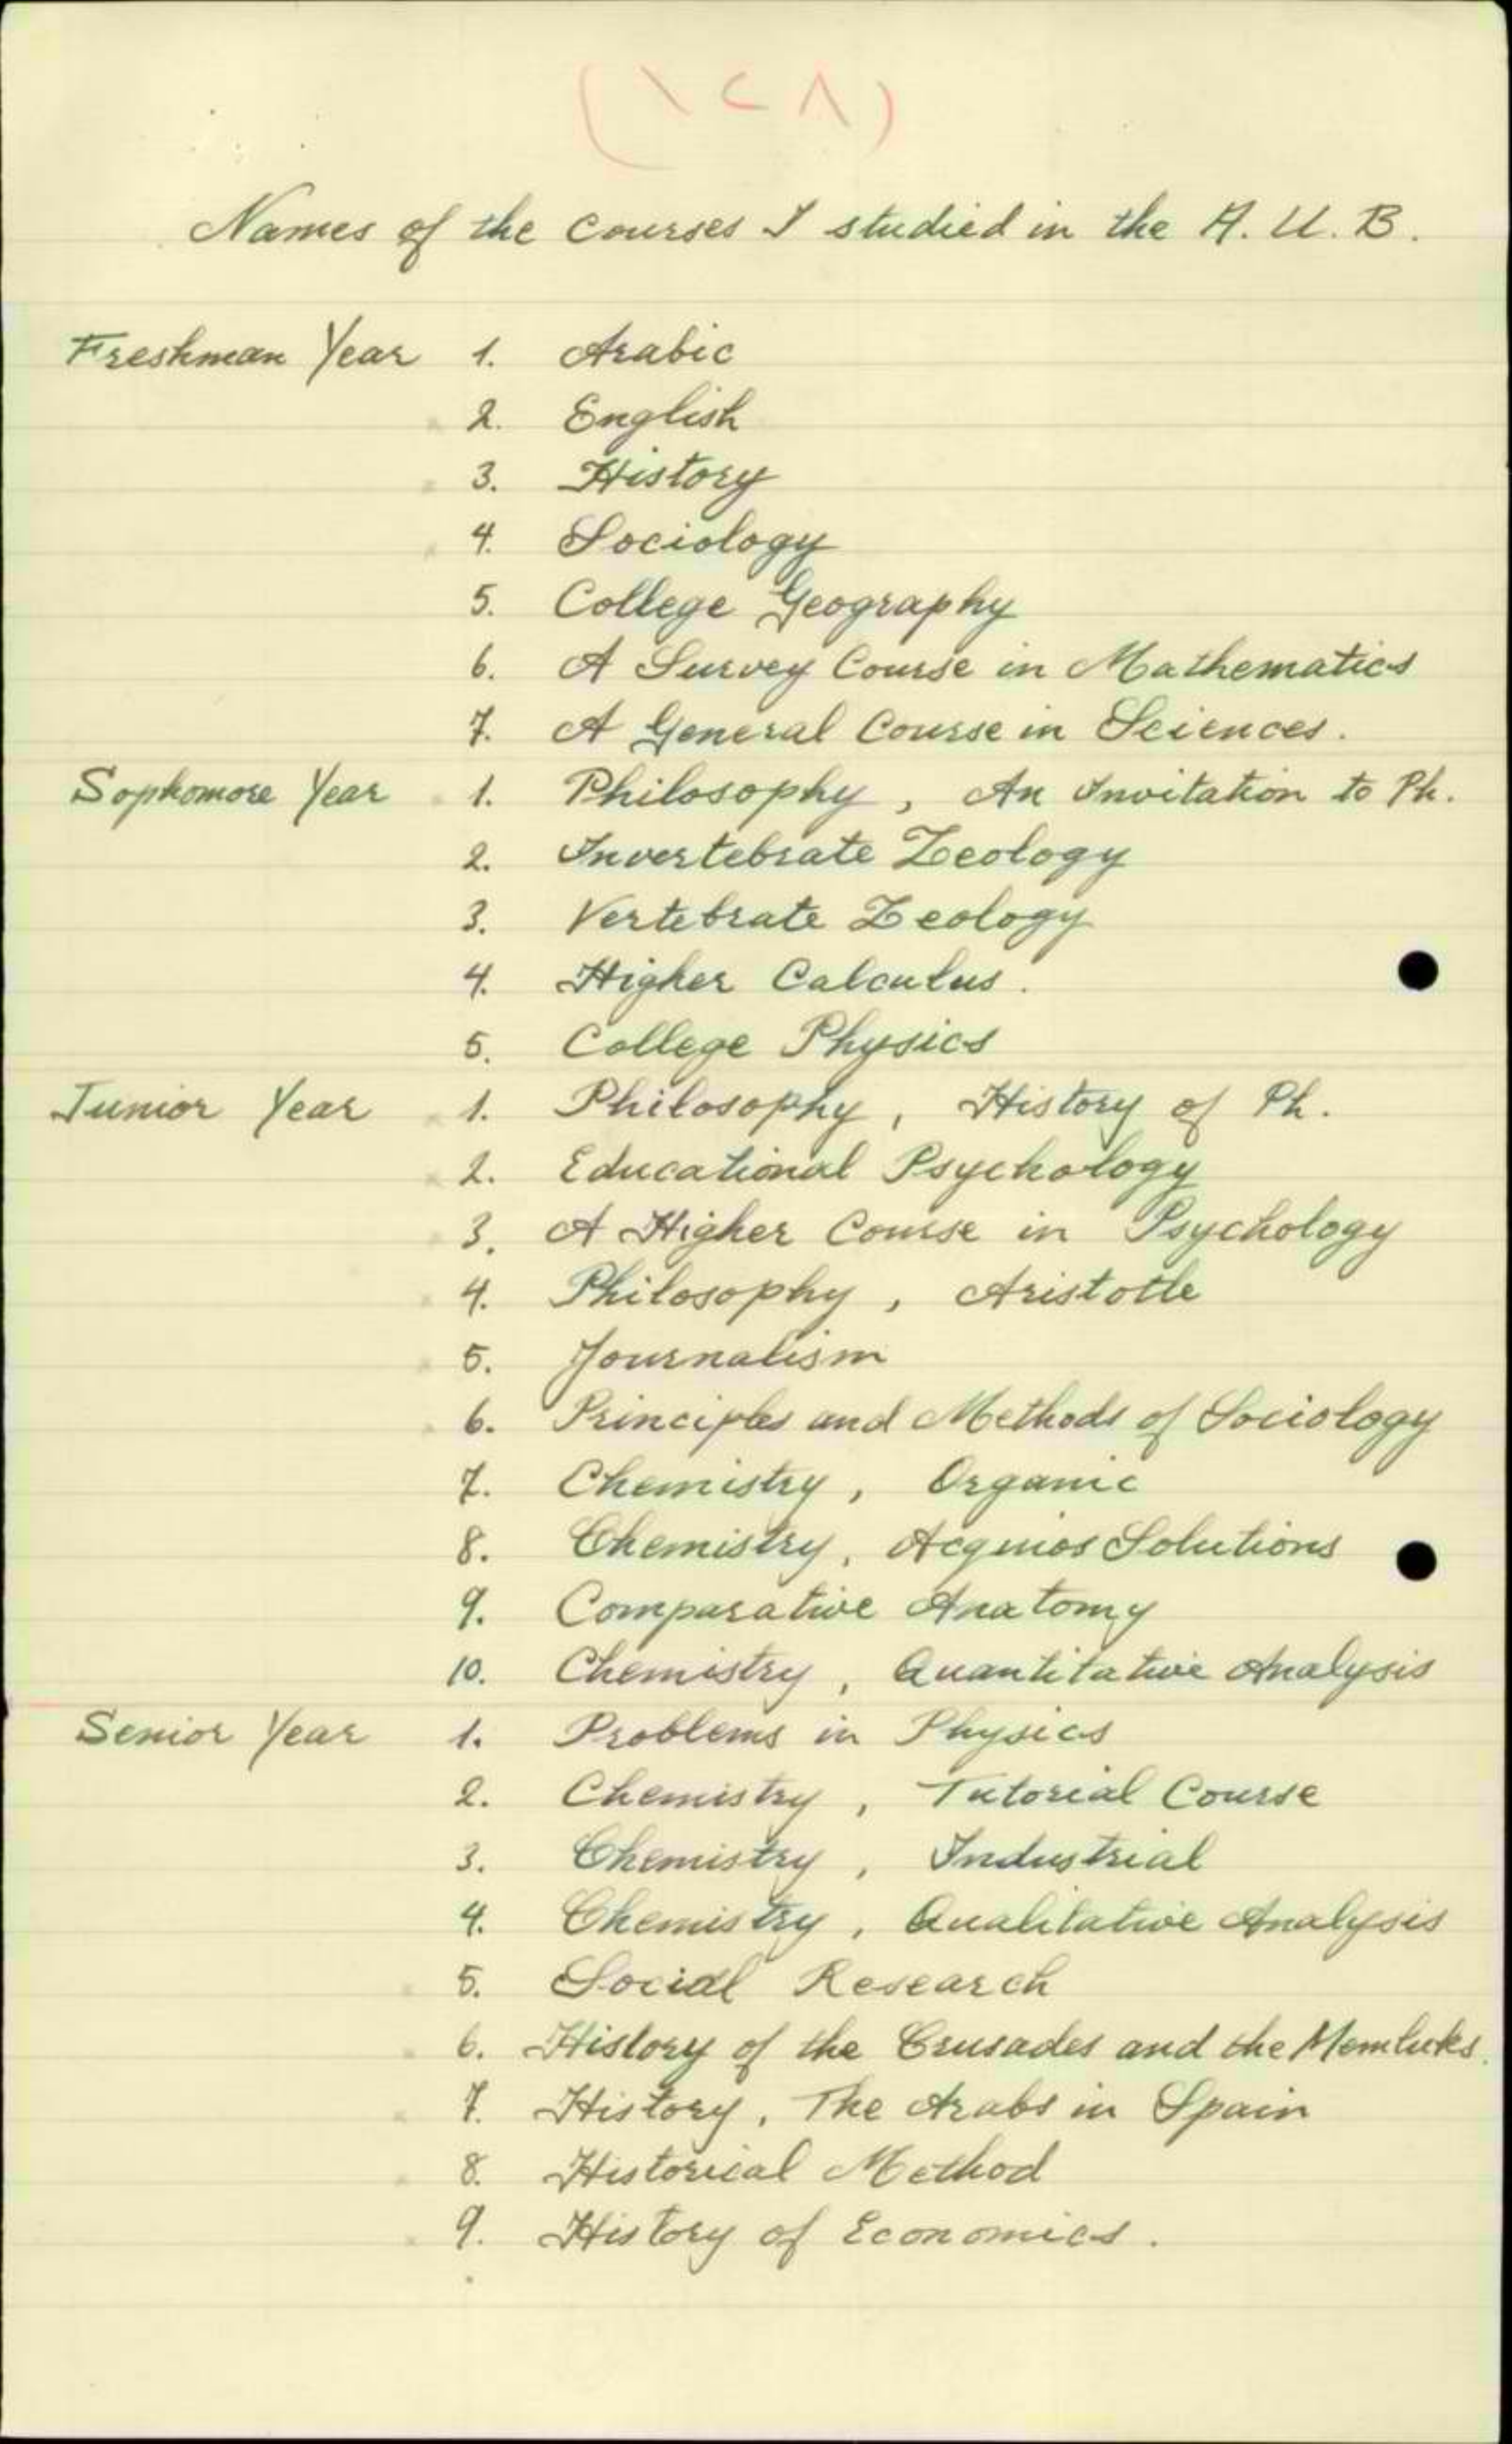 (١٢٨)
Names of the Courses I studied in the A. U. B.
Freshman Year 1. Arabic
2. English
3. History
4. Sociology
5. College Geography
6. A Survey Course in Mathematics
7. A General Course in Sciences.
Sophomore Year 1. Philosophy, An Invitation to Ph.
2. Invertebrate Zoology
3. Vertebrate Zoology
4. Higher Calculus.
5. College Physics
Junior Year 1. Philosophy, History of Ph.
2. Educational Psychology
3. A Higher Course in Psychology
4. Philosophy, Aristotle
5. Journalism
6. Principles and Methods of Sociology
7. Chemistry, Organic
8. Chemistry, Acquios Solutions
9. Comparative Anatomy
10. Chemistry, Quantitative Analysis
Senior Year 1. Problems in Physics
2. Chemistry, Tutorial Course
3. Chemistry, Industrial
4. Chemistry, Qualitative Analysis
5. Social Research
6. History of the Crusades and the Memluks.
7. History, The Arabs in Spain
8. Historical Method
9. History of Economics.